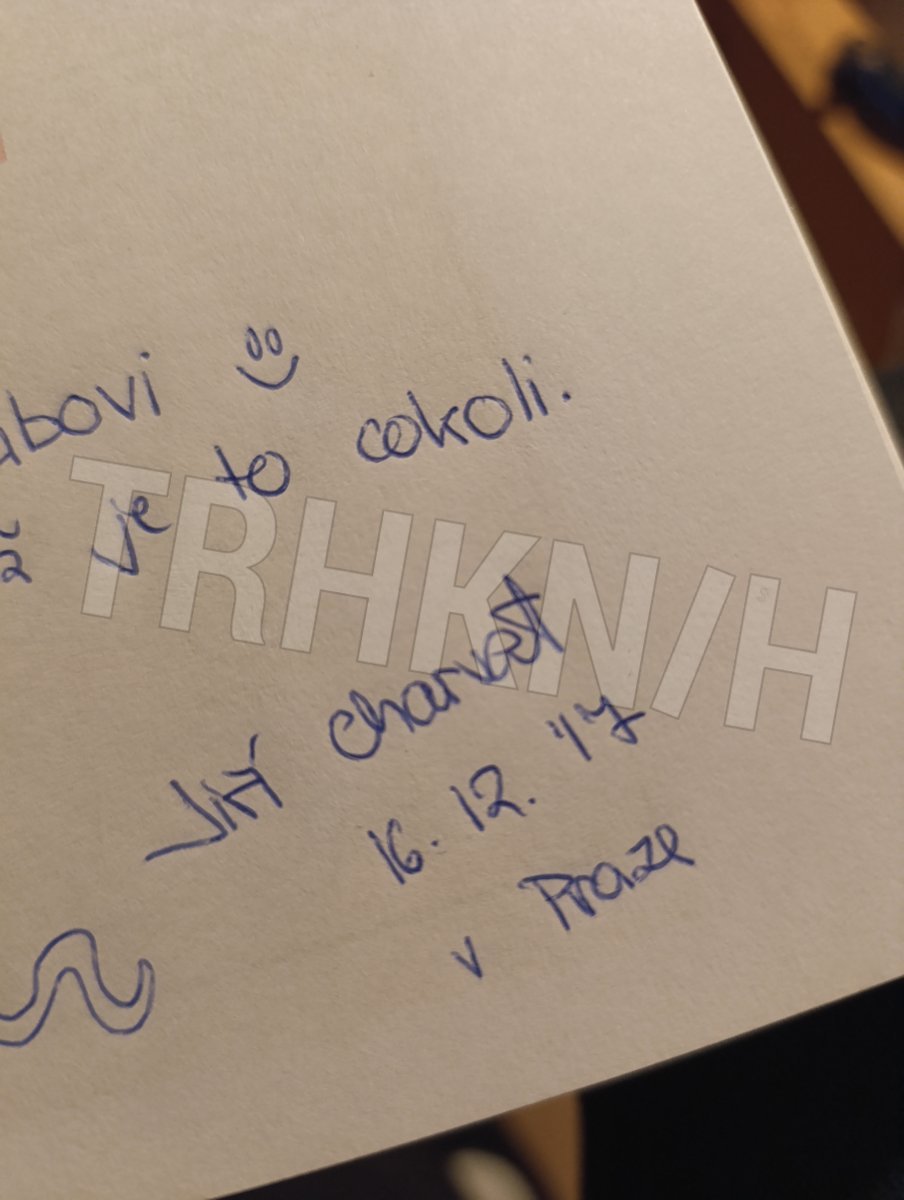 abovi
ž je to cokoli.
TRHKN/H
Jiří Charvát
16. 12. '17
v Praze